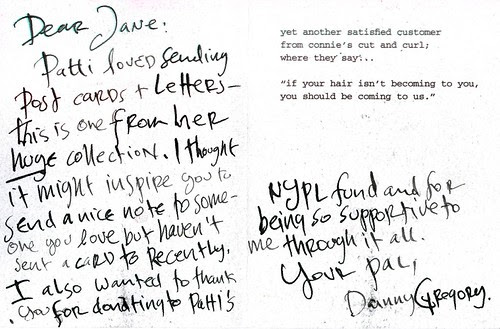 Dear Jane:
Patti loved sending
Post cards + Letters—
this is one from her
huge collection. I thought
it might inspire you to
send a nice note to some-
one you love but haven't
sent a card to recently.
I also wanted to thank
you for donating to Patti's
yet another satisfied customer
from connie's cut and curl;
where they say...
"if your hair isn't becoming to you,
you should be coming to us."
NYPL fund and for
being so supportive to
me through it all.
Your pal,
Danny Gregory.